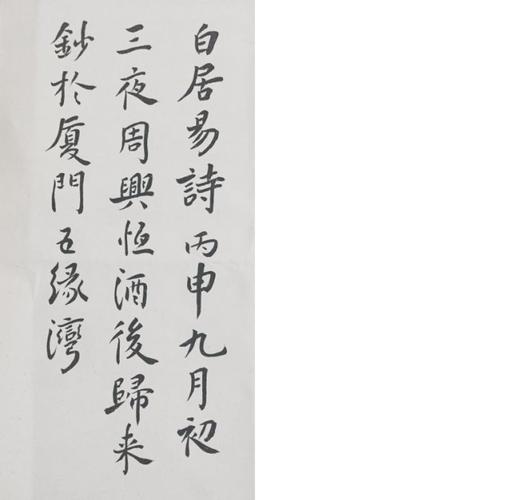 白居易詩丙申九月初
三夜周興恒酒後歸来
鈔於厦門五緣灣